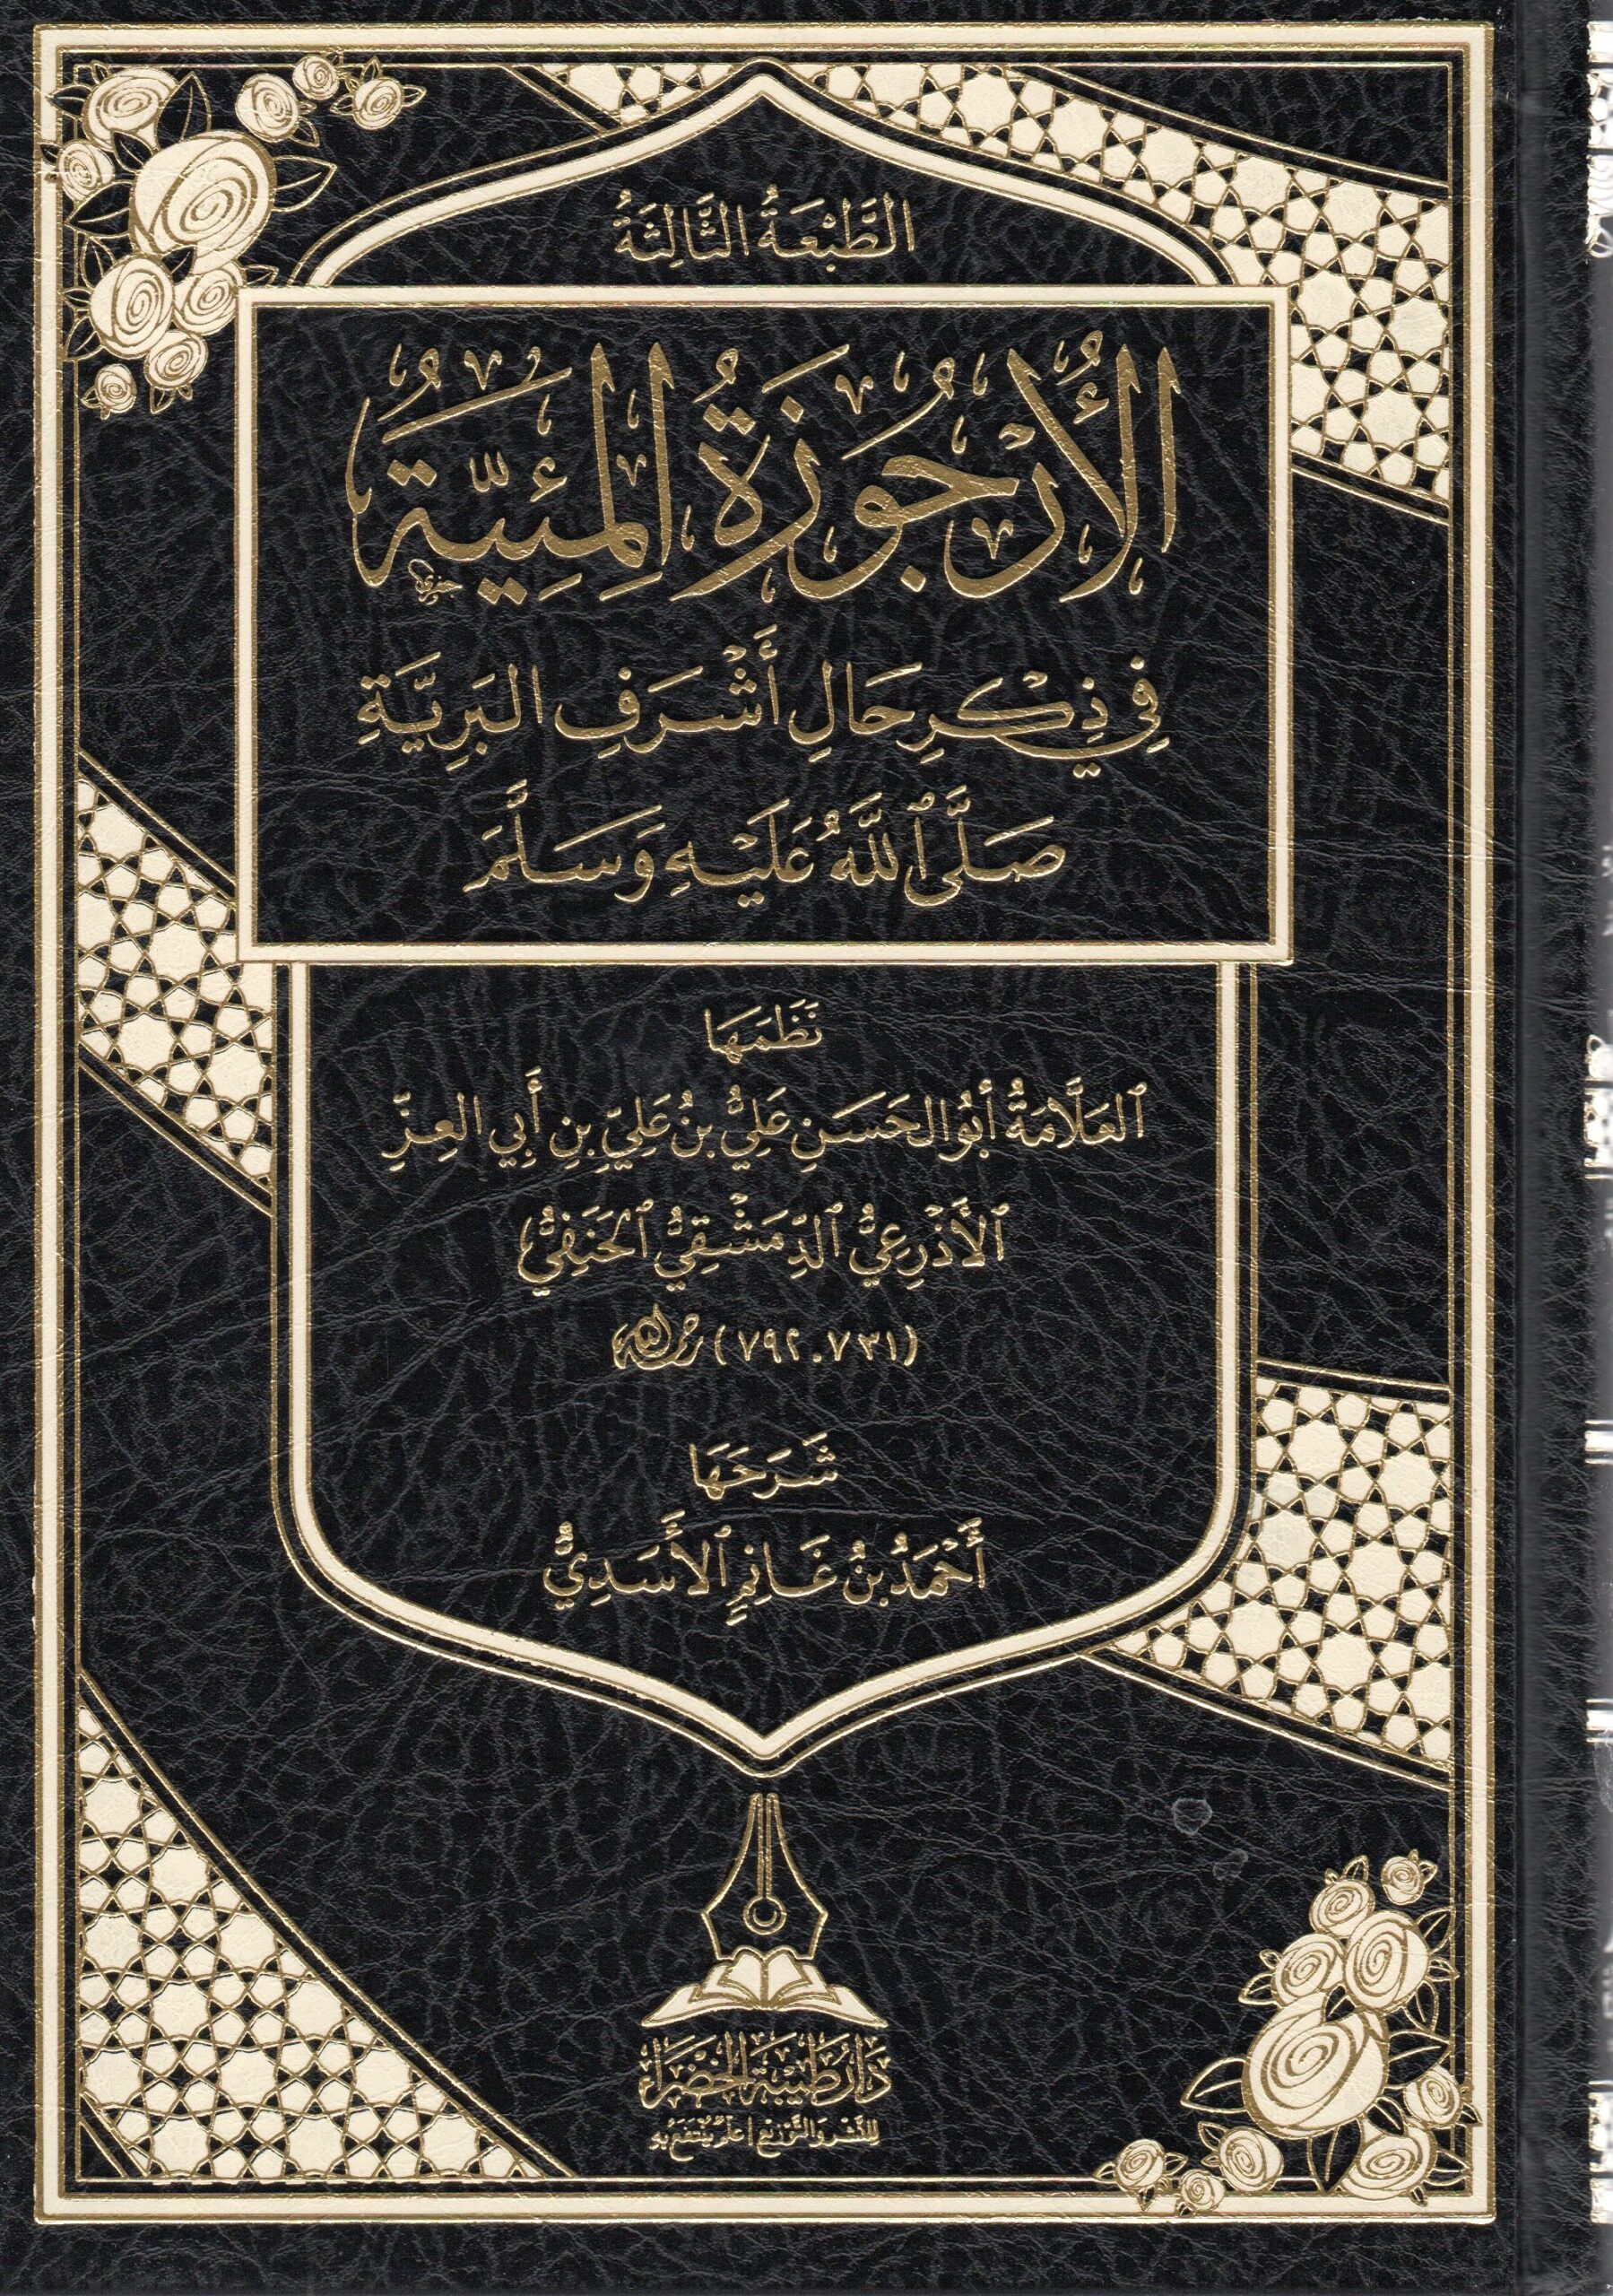 الطَّبْعَةُ الثَّالِثَةُ
الأُرْجُوزَةُ المِئِيَّةُ
فِي ذِكْرِ حَالِ أَشْرَفِ البَرِيَّةِ
صَلَّى ٱللَّهُ عَلَيْهِ وَسَلَّمَ
نَظَمَهَا
ٱلعَلَّامَةُ أَبُو الحَسَنِ عَلِيُّ بْنُ عَلِيِّ بْنِ أَبِي العِزِّ
ٱلأَذْرَعِيُّ ٱلدِّمَشْقِيُّ ٱلحَنَفِيُّ
(٧٣١-٧٩٢) رحمه الله
شَرَحَهَا
أَحْمَدُ بْنُ غَانِمٍ ٱلأَسَدِيُّ
دَارُ طَيْبَةَ الخَضْرَاءِ
لِلنَّشْرِ وَالتَّوْزِيعِ | عِلْمٌ يُنْتَفَعُ بِهِ